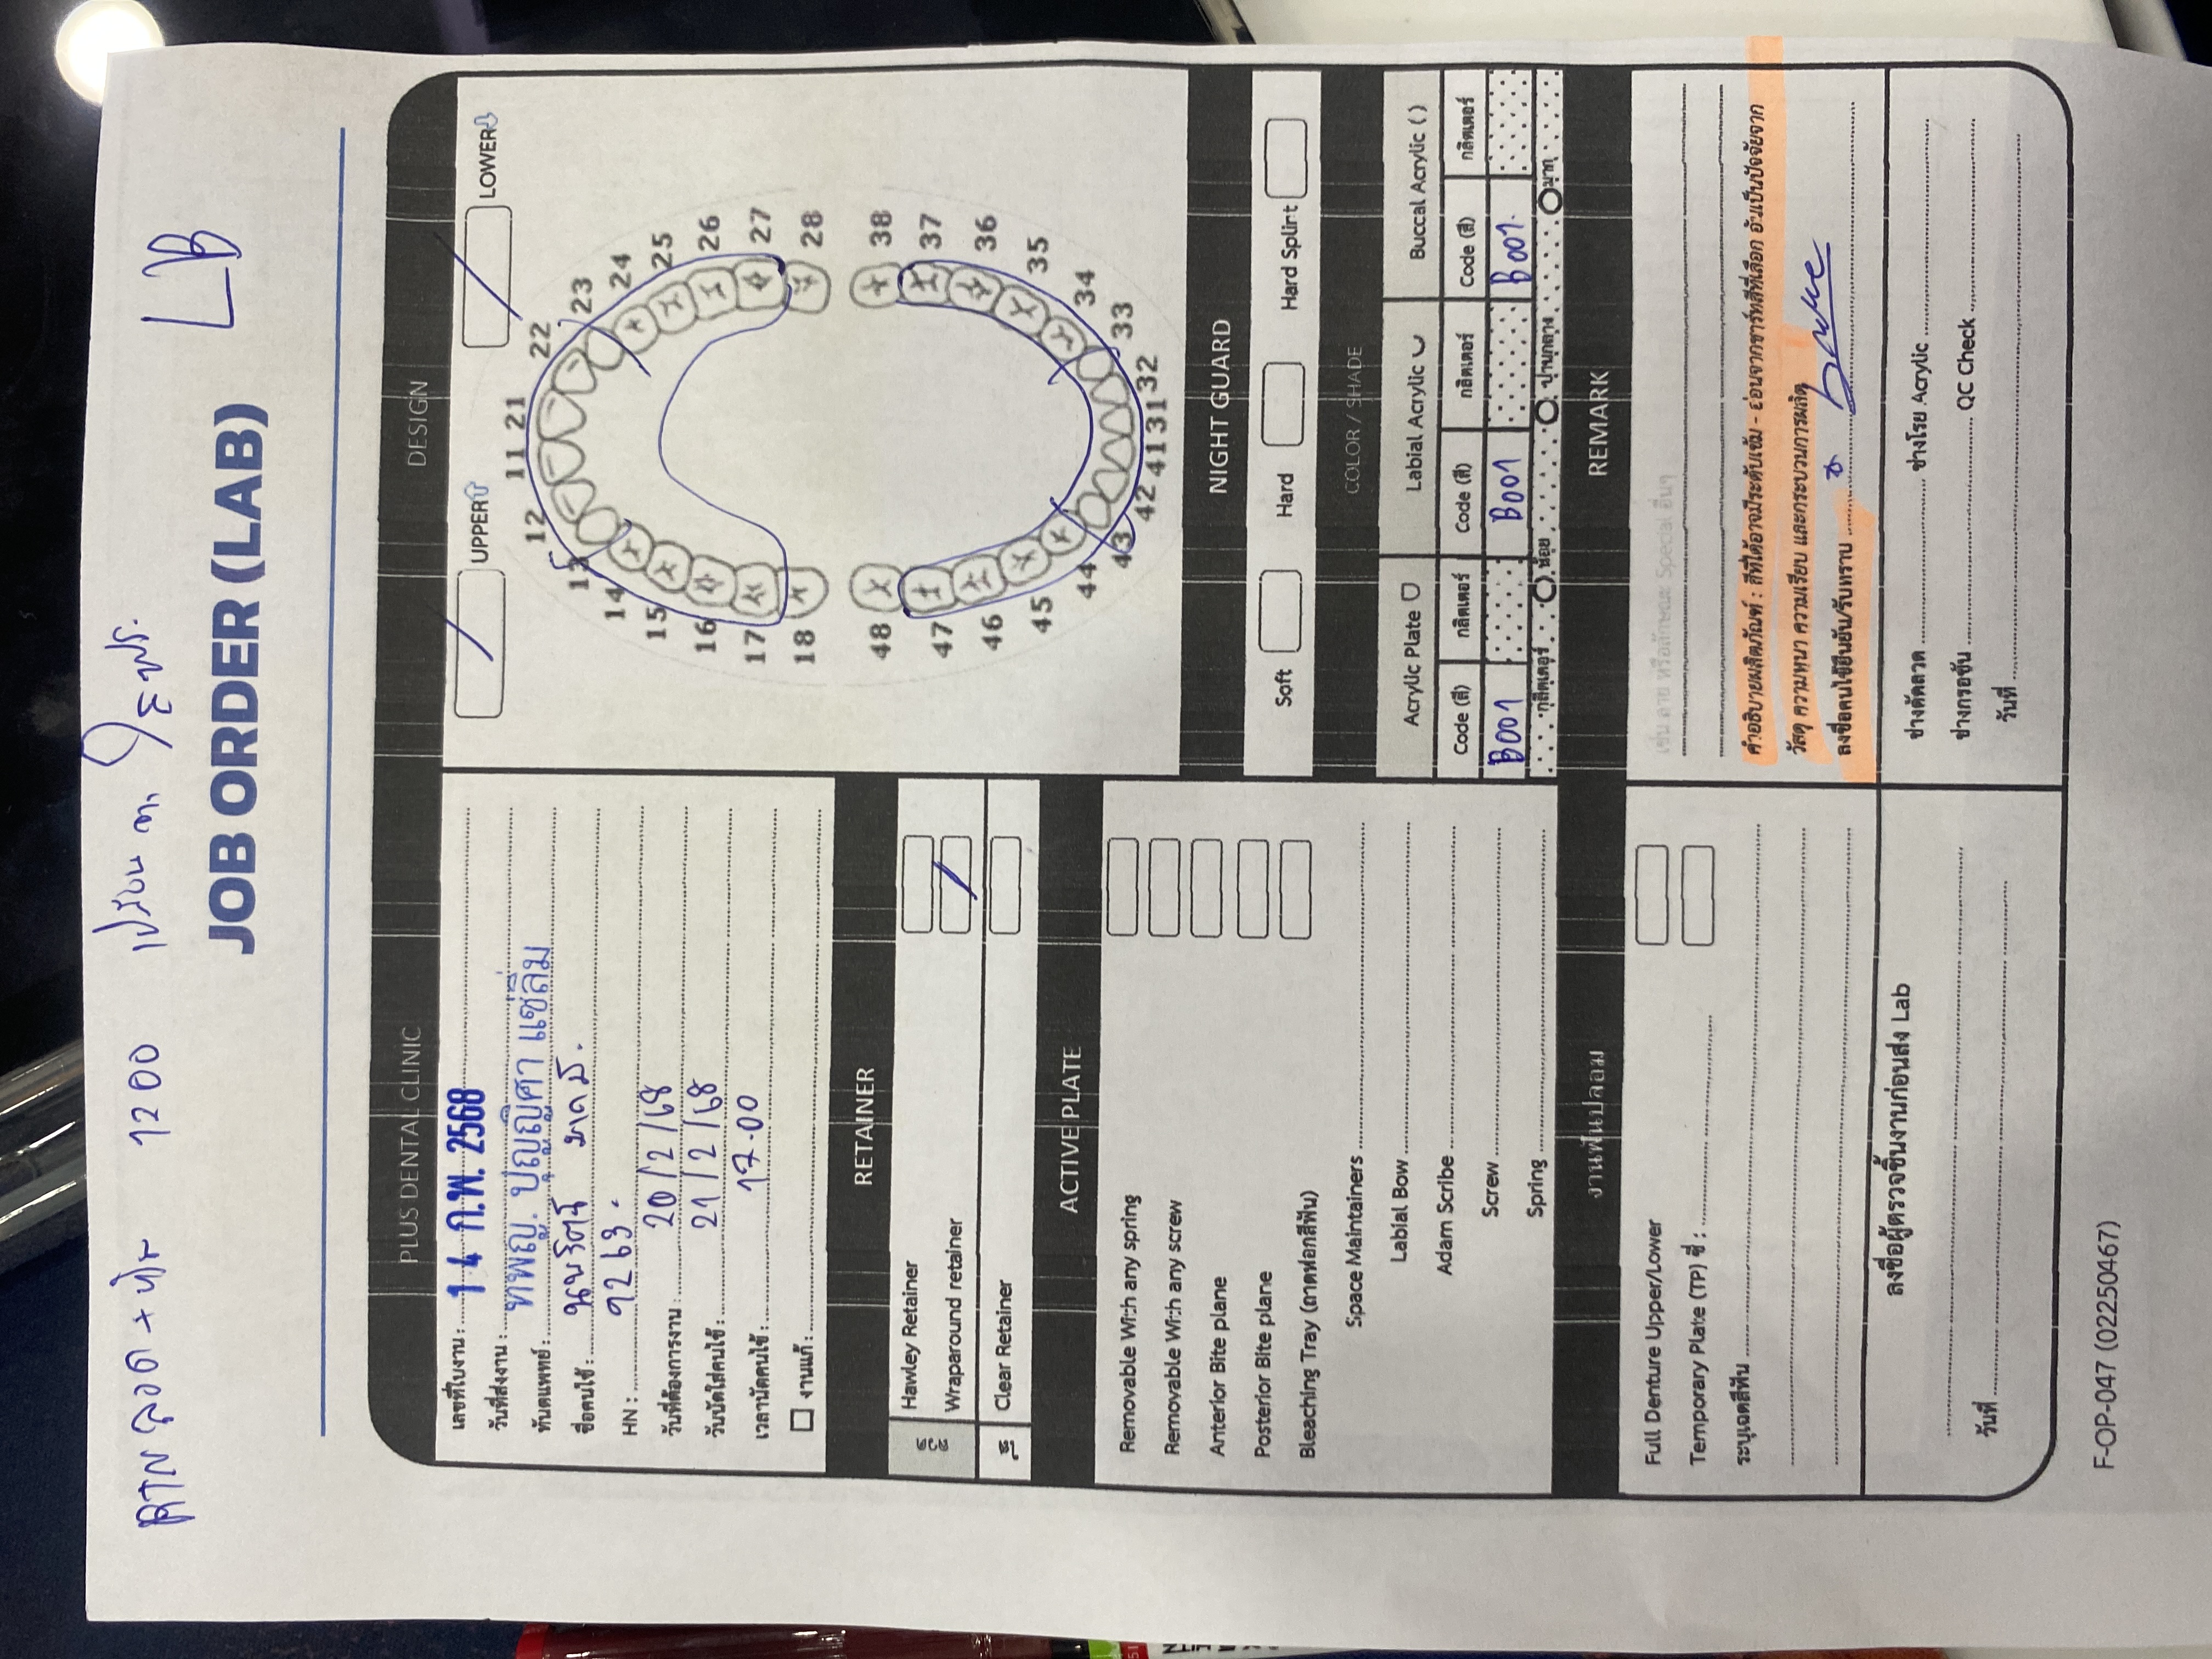 1200
LB
JOB ORDER (LAB)
PLUS DENTAL CLINIC
เลขที่ใบงาน :
14 ก.พ. 2568
วันที่ส่งงาน :
ทันตแพทย์ : ทพญ. ปุญญิศา แซ่ลิ่ม
ชื่อคนไข้ :
HN : 9263.
วันที่ต้องการงาน : 20/2/68
วันนัดใส่คนไข้ : 21/2/68
เวลานัดคนไข้ : 17.00
งานแก้ :
RETAINER
Hawley Retainer
ลวด
Wraparound retainer
ใส
Clear Retainer
ACTIVE PLATE
Removable With any spring
Removable With any screw
Anterior Bite plane
Posterior Bite plane
Bleaching Tray (ถาดฟอกสีฟัน)
Space Maintainers
Labial Bow
Adam Scribe
Screw
Spring
งานฟันปลอม
Full Denture Upper/Lower
Temporary Plate (TP) ซี่ :
ระบุเฉดสีฟัน
ลงชื่อผู้ตรวจชิ้นงานก่อนส่ง Lab
วันที่
DESIGN
UPPER LOWER
11 21
12 22
13 23
14 24
15 25
16 26
17 27
18 28
48 38
47 37
46 36
45 35
44 34
43 33
42 41 31 32
NIGHT GUARD
Soft Hard Hard Splint
COLOR / SHADE
Acrylic Plate Labial Acrylic Buccal Acrylic ( )
Code (สี) กลิตเตอร์ Code (สี) กลิตเตอร์ Code (สี) กลิตเตอร์
B001 B001 B001
กลิตเตอร์ น้อย ปานกลาง มาก
REMARK
เช่น ลาย หรือลักษณะ Special อื่นๆ
คำอธิบายผลิตภัณฑ์ : สีที่ได้อาจมีระดับเข้ม - อ่อนจากชาร์ทสีที่เลือก อันเป็นปัจจัยจาก
วัสดุ ความหนา ความเรียบ และกระบวนการผลิต
ลงชื่อคนไข้ยืนยัน/รับทราบ
ช่างดัดลวด ช่างโรย Acrylic
ช่างกรอขัน QC Check
วันที่
F-OP-047 (02250467)